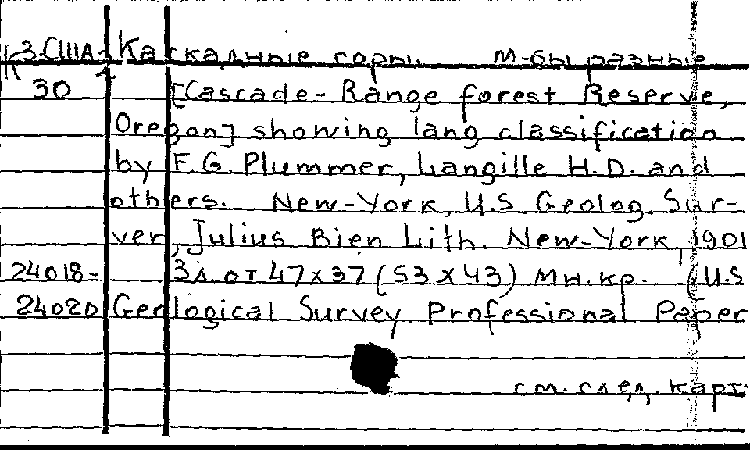 К3-США-2 Каскадные горы. М-бы разные
30 [Cascade-Range forest Reserve,
Oregon] showing lang classification
by F.G. Plummer, Langille H.D. and
others. New-York, U.S. Geolog. Sur-
ver, Julius Bien Lith. New-York, 1901
24018- 3л. от 47x37 (53x43) мн. кр. (U.S
24020 Geological Survey Professional Paper
см. след. карт